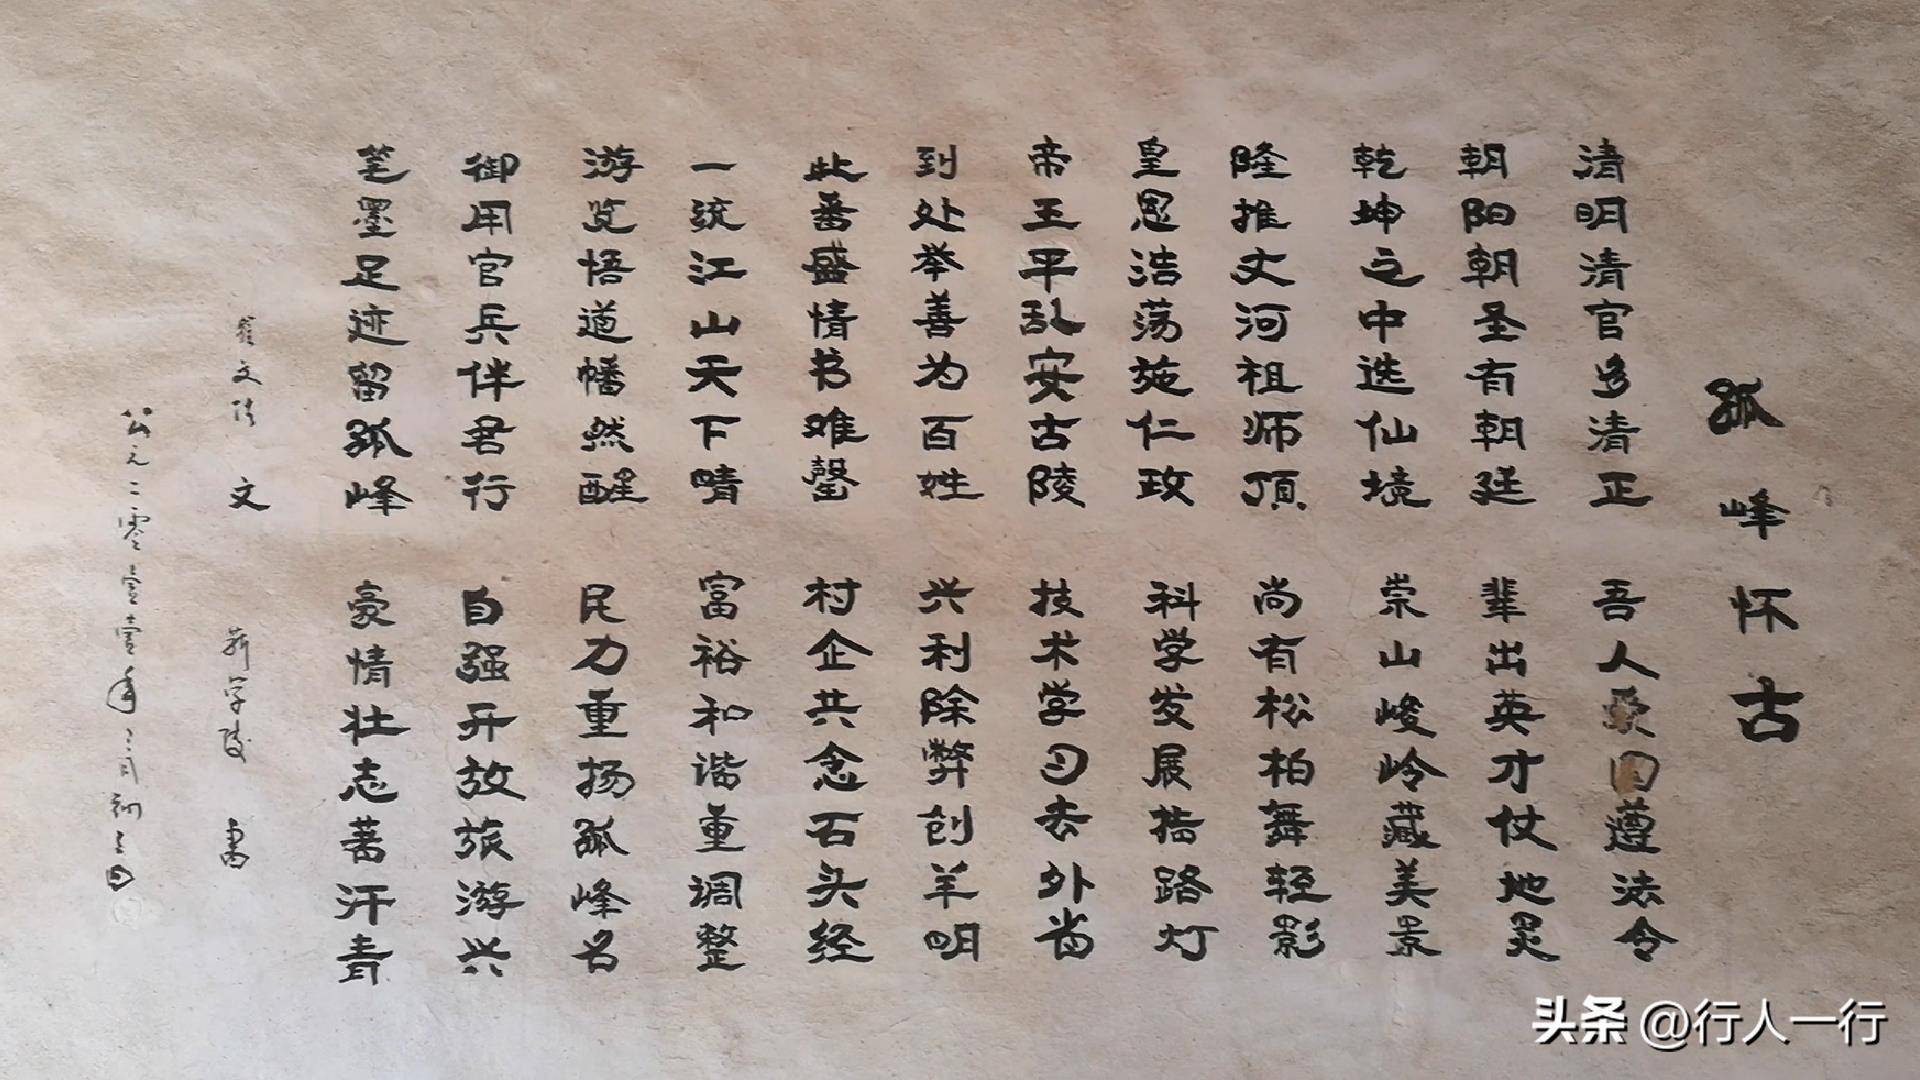 孤峰怀古
清明清官多清正 吾人爱国遵法令
朝阳朝圣有朝廷 辈出英才仗地灵
乾坤之中选仙境 崇山峻岭藏美景
隆推丈河祖师顶 尚有松柏舞轻影
皇恩浩荡施仁政 科学发展指路灯
帝王平乱安古陵 技术学习去外省
到处举善为百姓 兴利除弊创羊明
此蕃盛情书难罄 村企共念石头经
一统江山天下晴 富裕和谐重调整
游览悟道幡然醒 民力重扬孤峰名
御用官兵伴君行 自强开放旅游兴
笔墨足迹留孤峰 豪情壮志著汗青
崔文 文 学陵 书
公元二零壹壹年三月初三日
头条 @行人一行